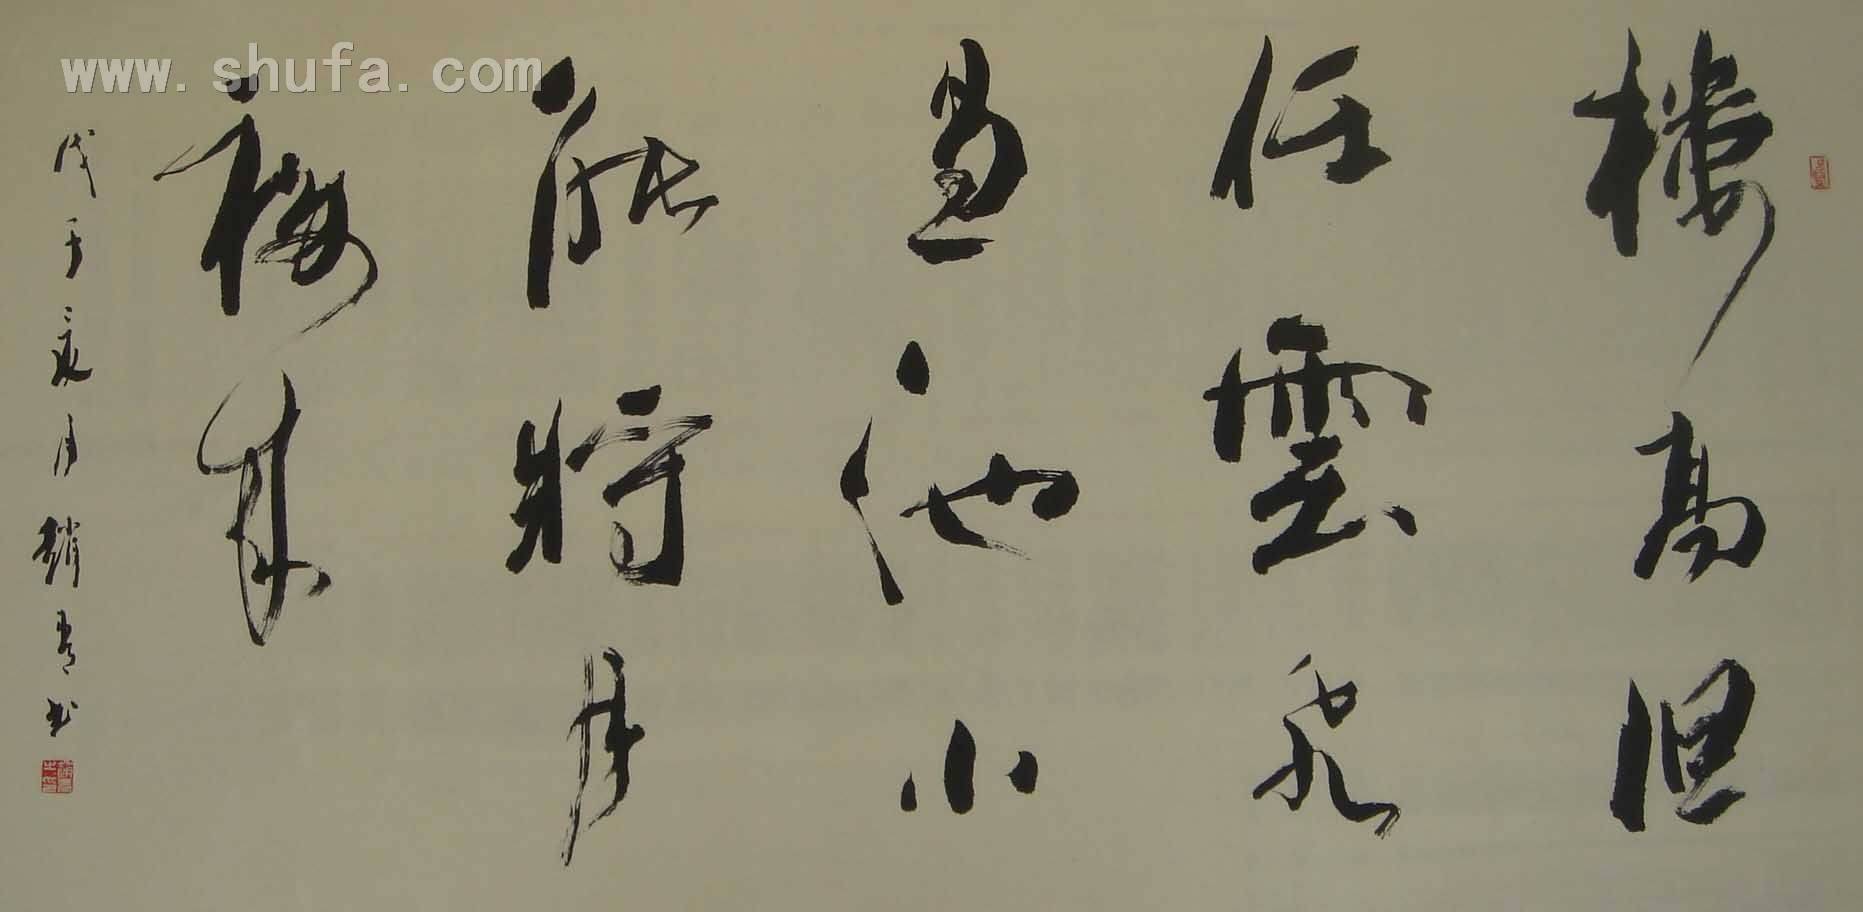 樓高但
任雲飛
過池小
能將月
來
戊子夏月趙青书
www.shufa.com